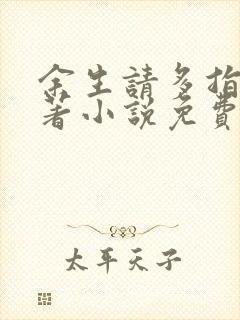 余生請多指
著小說免費
太平天子